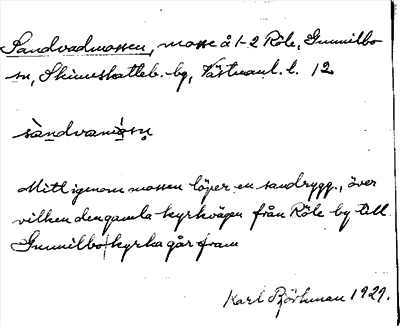 Sandvadmossen, mosse å 1-2 Röle, Gunnilbo
sn, Skinnskatteb. bg, Västmanl. l. 12
Mitt igenom mossen löper en sandrygg, över
vilken den gamla kyrkvägen från Röle by till
Gunnilbo kyrka går fram
Karl Björkman 1929.